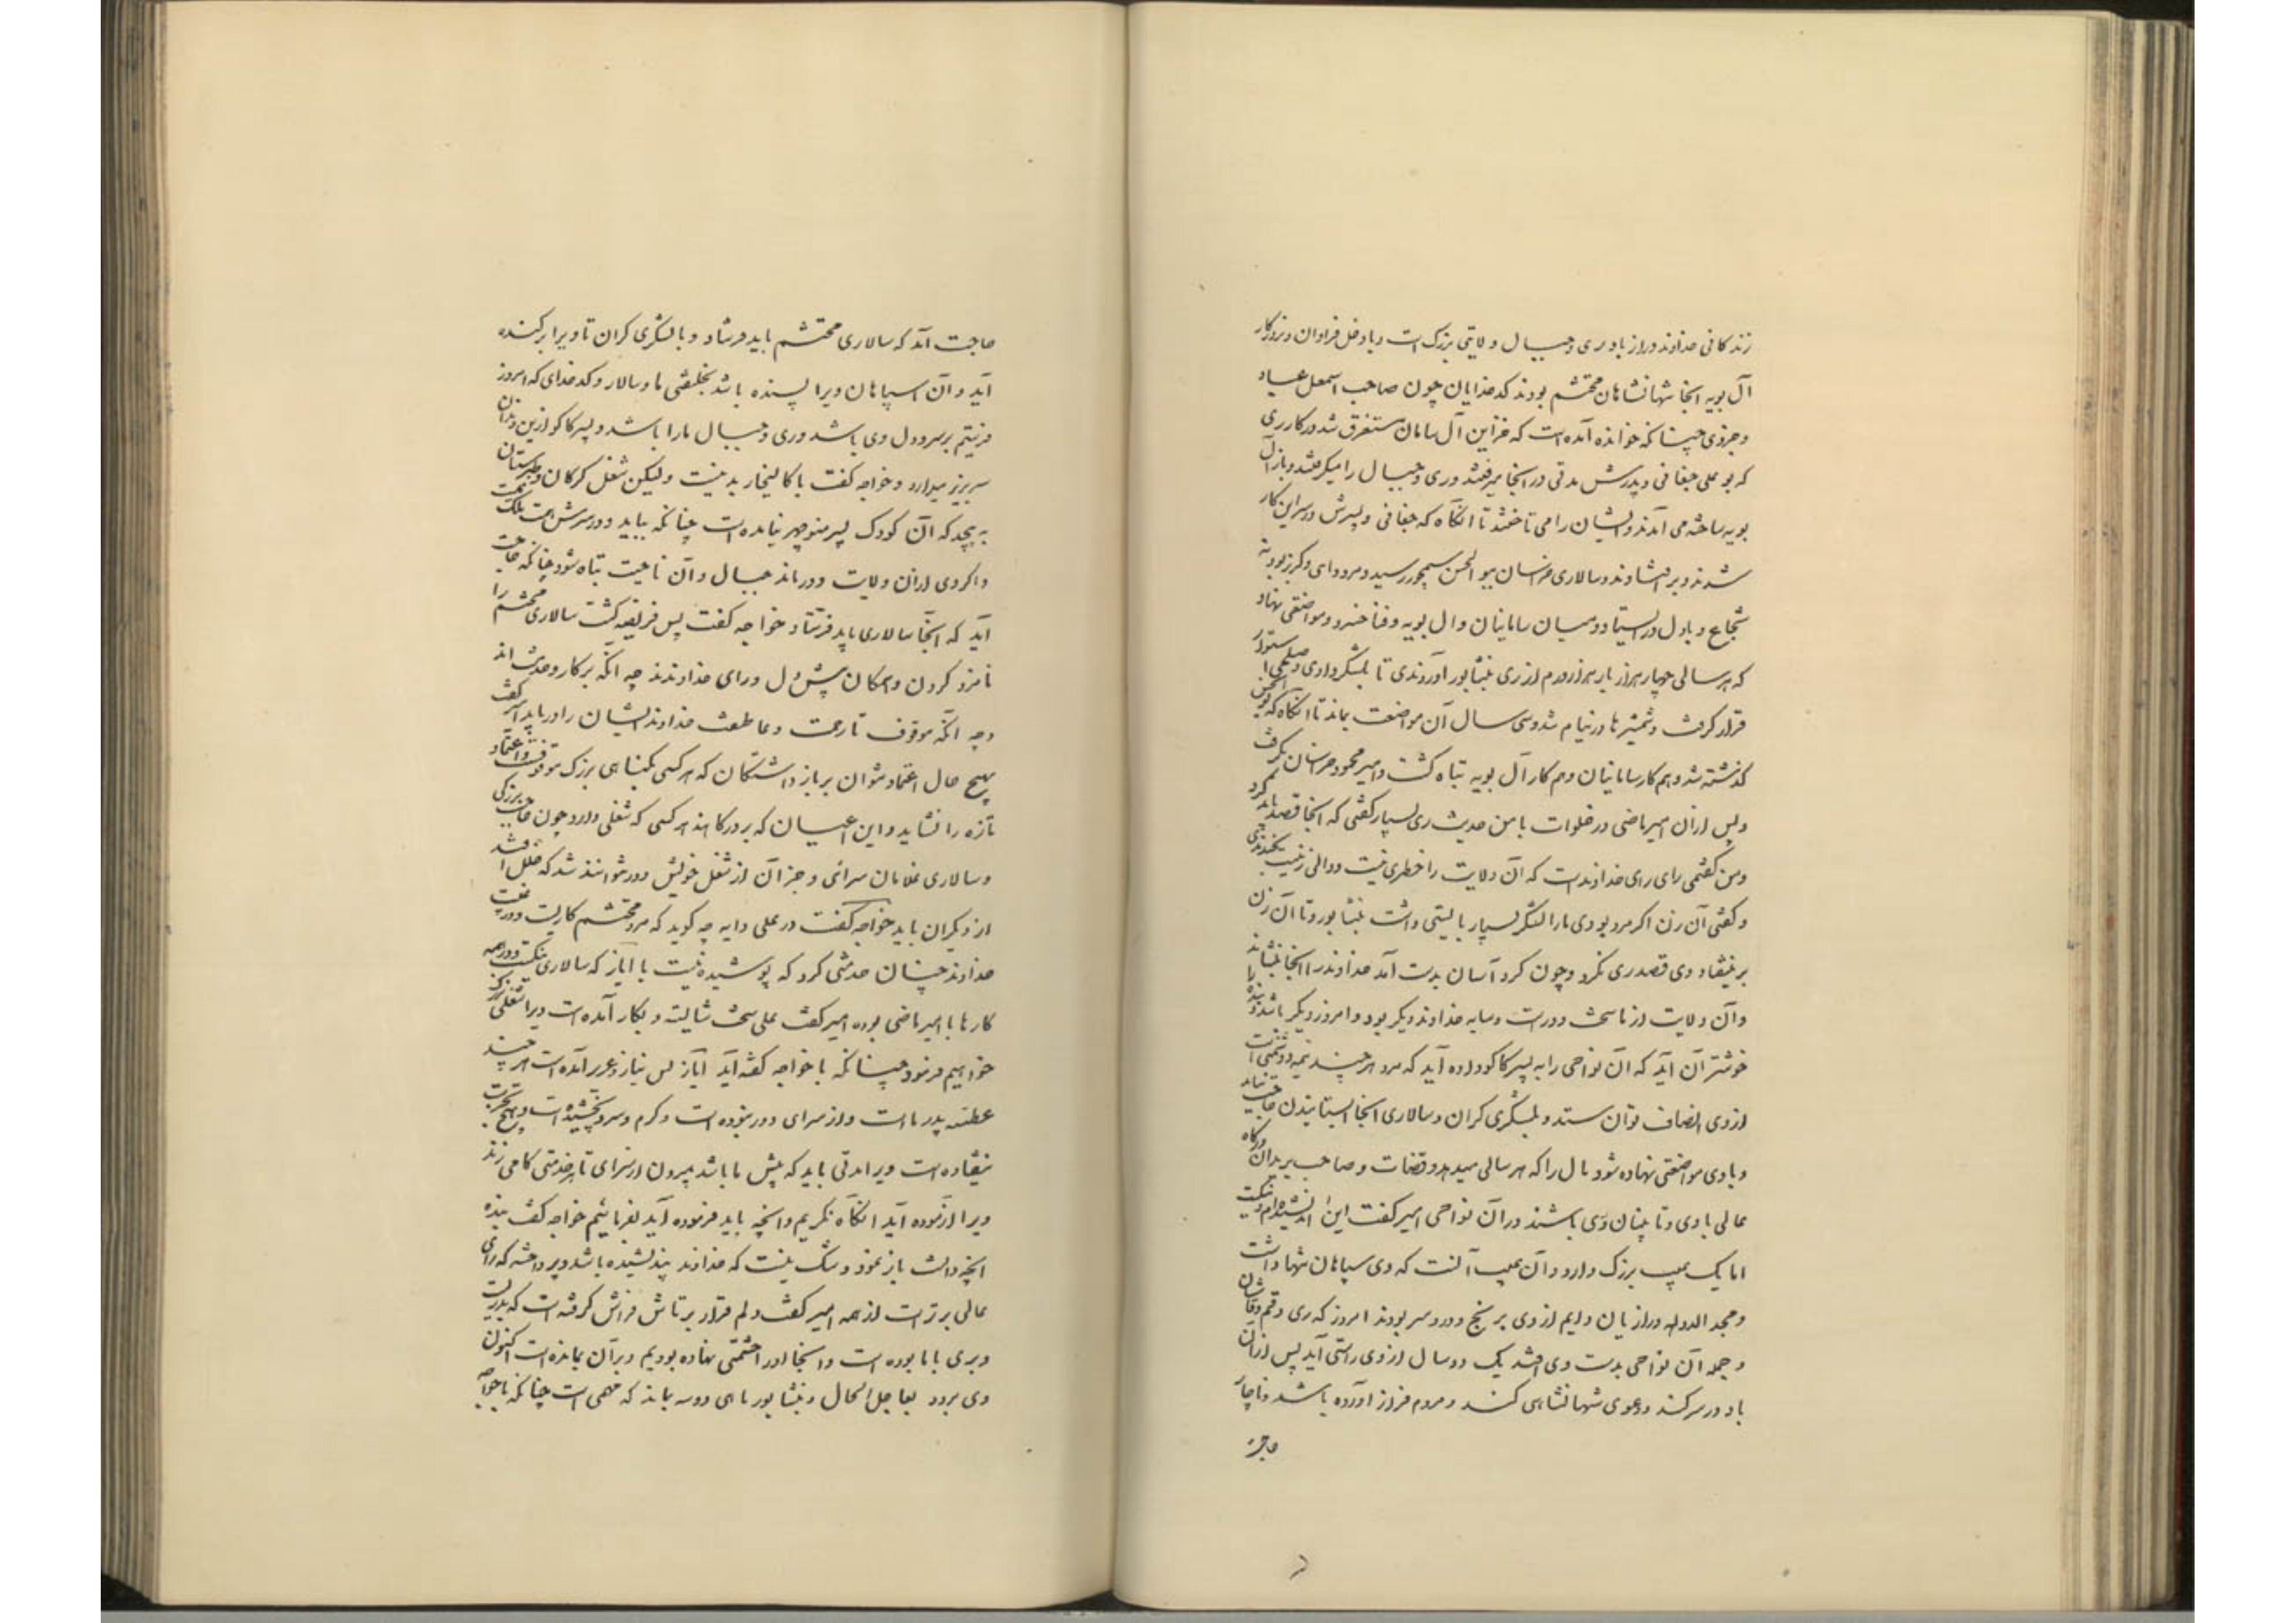 زندکانی خداوند دراز باد ری و جبال ولایتی بزرک است و با دخل فراوان و بروزکار
آل بویه آنجا شهانشاهان محتشم بودند کدخدایان چون صاحب اسمعیل عباد
و جز وی چنانکه خوانده آمده است که خزاین آل سامان مستغرق شد در کار ری
که بو علی چغانی و پدرش مدتی در آنجا میرفتند و ری و جبال را میکرفتند و باز آل
بویه ساخته می آمدند و ایشان را می تاختند تا آنکاه که چغانی و پسرش در سر این کار
شدند و بر افتادند و سالاری خراسان ببو الحسن سیمجور رسید و مرد داهی و کربز بود نه
شجاع و با دل در ایستاد و میان سامانیان و ال بویه و فنا خسرو مواضعتی نهاد
که هر سالی چهار هزار بار هزار درم از ری بنشابور آوردندی تا بلشکر دادی و صلحی استوار
قرار کرفت و شمشیرها در نیام شد و سی سال آن مواضعت بماند تا آنکاه که بو الحسن
کذشته شد و هم کار سامانیان و هم کار آل بویه تباه کشت و امیر محمود خراسان بکرفت
و پس ازان امیر ماضی در خلوات با من حدیث ری بسیار کفتی که آنجا قصد باید کرد
و من کفتمی رای رای خداوند است که آن ولایت را خطری نیست و والی زنیست بخندیدی
و کفتی آن زن اکر مرد بودی ما را لشکر بسیار بایستی داشت بنشابور و تا آن زن
بر نیفتاد وی قصد ری نکرد و چون کرد آسان بدست آمد خداوند را آنجا بنشاند
و آن ولایت از ما سخت دور است و سایه خداوند دیکر بود و امروز دیکر باشد و بنده را
خوشتر آن آید که آن نواحی را به پسر کاکو داده آید که مرد هر چند نیمه دشمنی است
از وی انصاف توان ستد و بلشکری کران و سالاری آنجا ایستانیدن حاجت نیاید
و با وی مواضعتی نهاده شود مال را که هر سالی میدهد و قضات و صاحب بریدان درکاه
عالی با وی و نایبان وی باشند در آن نواحی امیر کفت این اندیشیده ام و نیکست
اما یک عیب بزرک دارد و آن عیب آنست که وی سپاهان تنها داشت
و مجد الدوله و رازیان دایم از وی برنج و درد سر بودند امروز که ری و قم و قاشان
و جمله آن نواحی بدست وی افتد یک دو سال از وی راستی آید پس ازان
باد در سر کند و دعوی شهانشاهی کند و مردم فراز آورده باشد و ناچار
حاجت آمد که سالاری محتشم باید فرستاد و با لشکری کران تا ویرا بر کنده
آید و آن سپاهان ویرا بسنده باشد بخلیفتی ما و سالار و کدخدای که امروز
فرستیم بر سر و دل وی باشد و ری و جبال ما را باشد و پسر کاکو ازین دندان
سر بزیر میدارد و خواجه کفت با کالیجار بد نیست و لیکن شغل کرکان و طبرستان
به پیچد که آن کودک پسر منوچهر نیامده است چنانکه بباید و در سرش همت ملک نیست
و اکر وی ازان ولایت دور ماند جبال و آن ناحیت تباه شود چنانکه حاجت
آید که آنجا سالاری باید فرستاد خواجه کفت پس فریضه کشت سالاری محتشم را
نامزد کردن و همکان پیش دل و رای خداوندند چه آنکه بر کار و خدمت اند
و چه آنکه موقوف تا رحمت و عاطفت خداوند ایشان را دریابد امیر کفت
بهیچ حال اعتماد نتوان بر باز داشتکان که هر کسی بکناهی بزرک موقوف است و اعتماد
تازه را نشاید و این اعیان که بر درکاهند هر کسی که شغلی دارد چون حاجب بزرکی
و سالاری غلامان سرائی و جز آن از شغل خویش دور نتوانند شد که خلل افتد
از دیکران باید خواجه کفت در علی دایه چه کوید که مرد محتشم کاریست و در غیبت
خداوند چنان خدمتی کرد که پوشیده نیست یا ایاز که سالاری نیکست و در همه
کارها با امیر ماضی بوده امیر کفت علی سخت شایسته و بکار آمده است ویرا شغلی بزرک
خواهیم فرمود چنانکه با خواجه کفته آید ایاز بس بناز و عزیز آمده است هر چند
عطسه پدر ما است و از سرای دور نبوده است و کرم و سرد نچشیده است و بهیچ تجربت
نیفتاده است ویرا مدتی باید که پیش ما باشد بیرون از سرای تا هر خدمتی کامی زند
ویرا آزموده آید آنکاه نکریم و آنچه باید فرموده آید بفرمائیم خواجه کفت بنده
آنچه دانست باز نمود و شک نیست که خداوند بیندیشیده باشد و پرداخته که رای
عالی برتر است از همه امیر کفت دلم قرار بر تاش فراش کرفته است که پدریست
و بری با ما بوده است و آنجا او را حشمتی نهاده بودیم و بر آن بمانده است اکنون
وی برود بعاجل الحال و بنشابور ماهی دو سه بماند که مهمی است چنانکه با خواجه